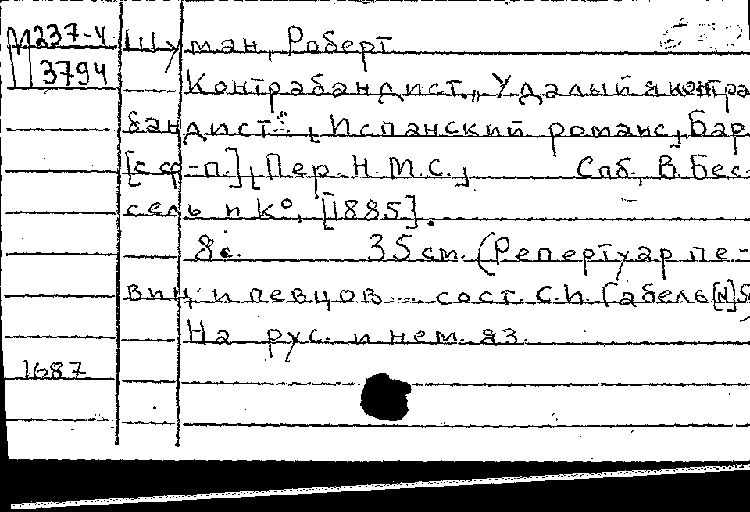 М 237-4
3794
Шуман, Роберт
Контрабандист. „Удалый я контра
бандист". Испанский романс, Бар
[с ф-п.], Пер. Н.М.С., Спб, В. Бес-
сель и К°, [1885].
8 с. 35 см. (Репертуар пе-
виц и певцов ... сост. С.И. Габель [N]
На рус. и нем. яз.
1687